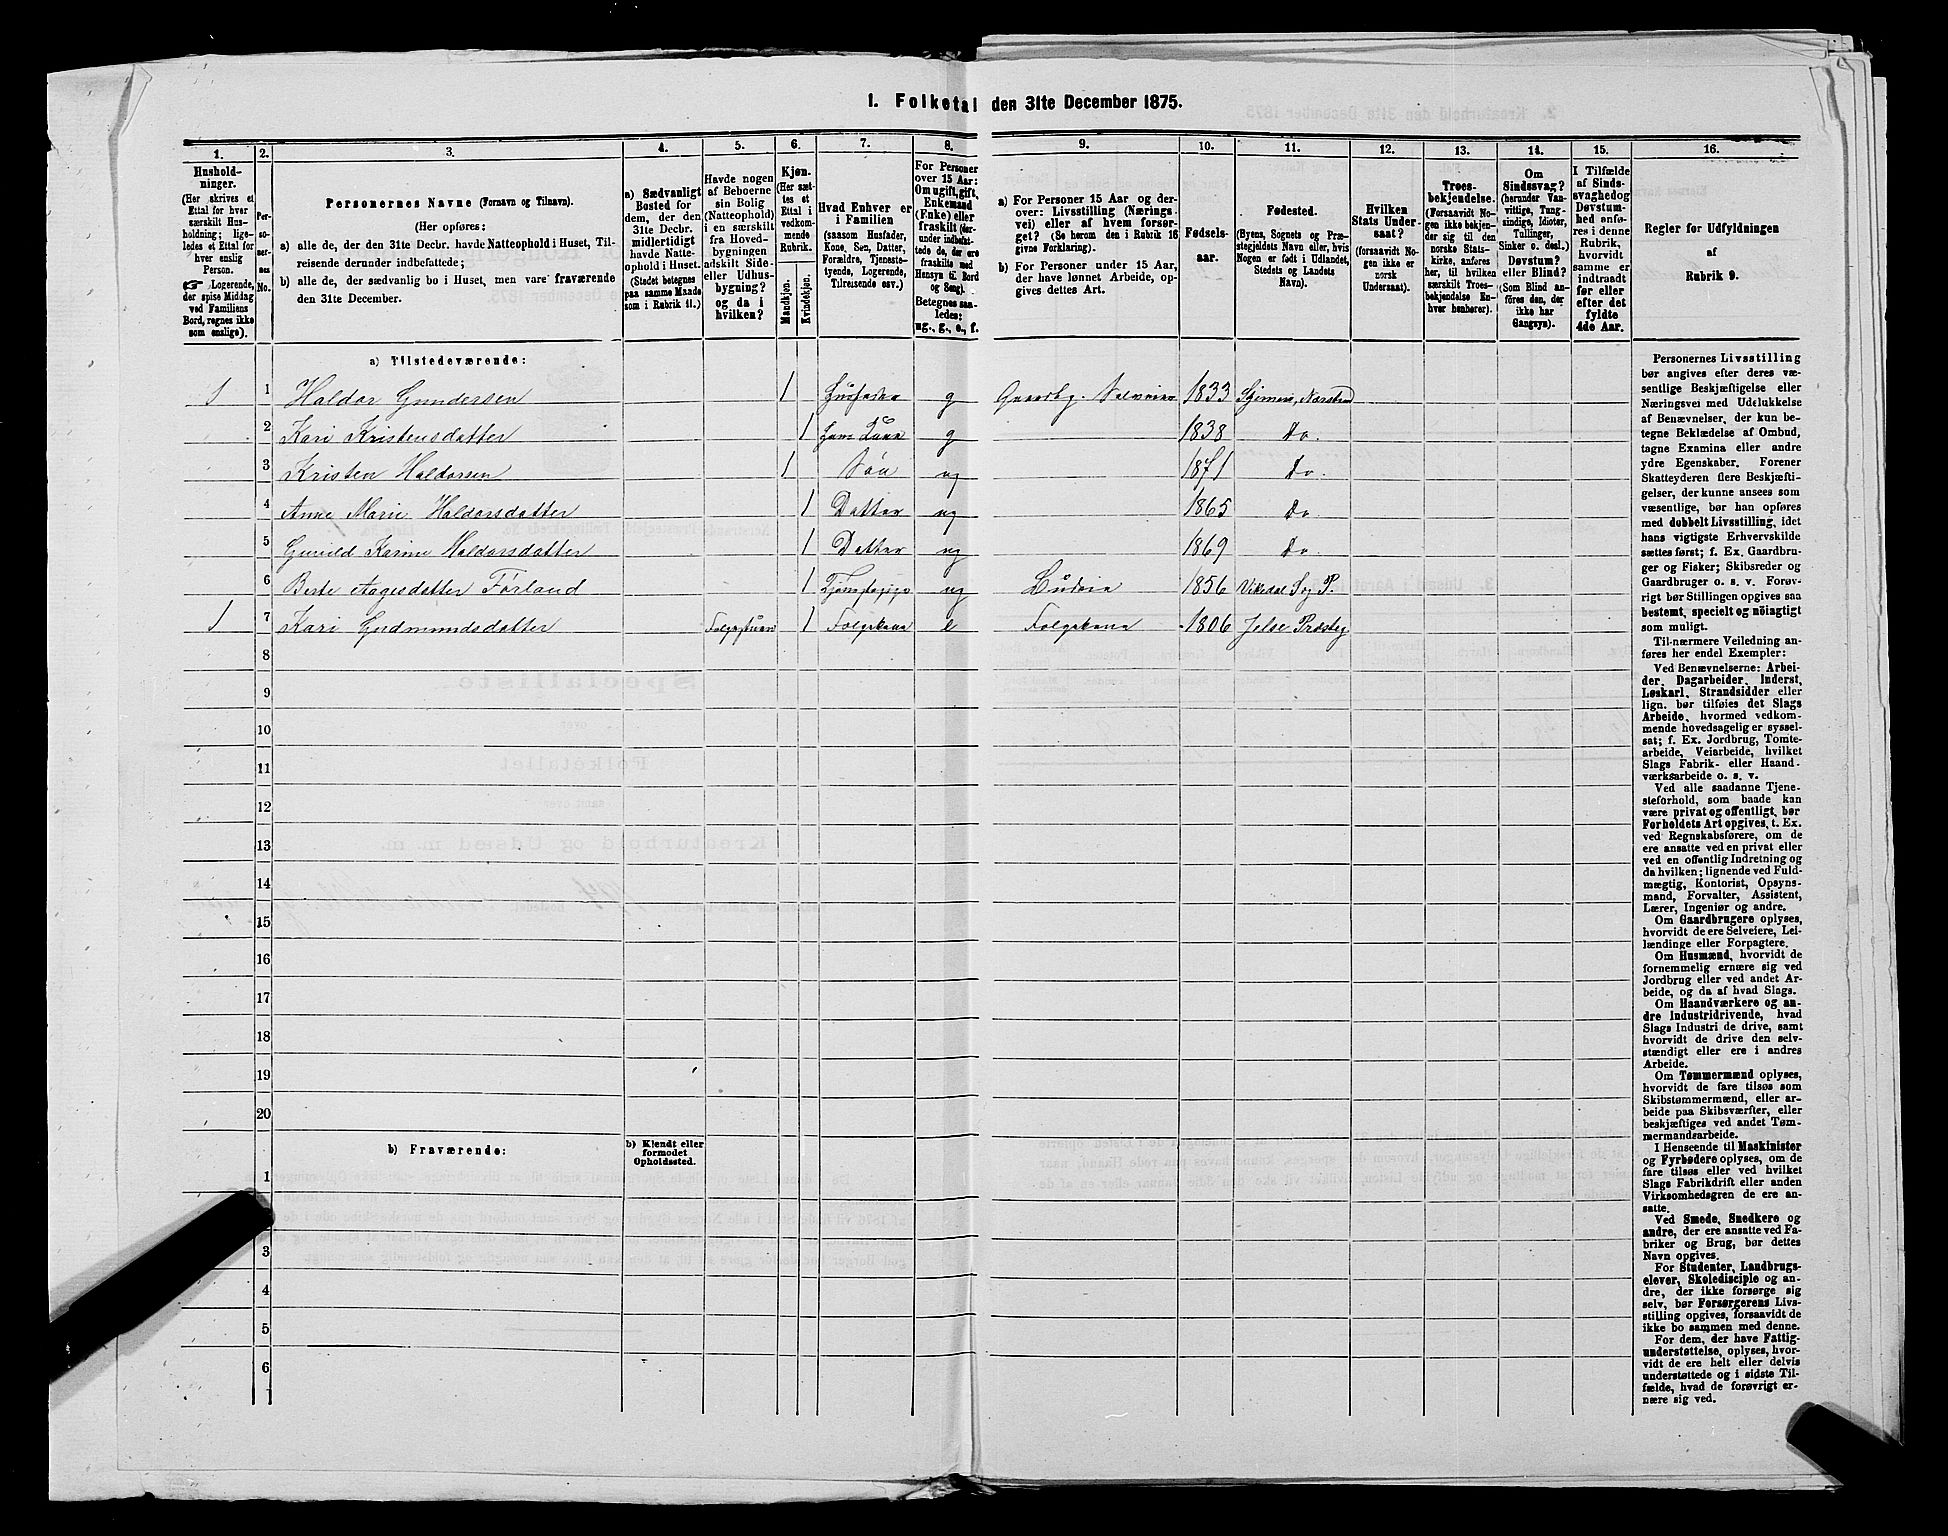 1. Folketal den 31te December 1875.
1.
2.
3.
4.
5.
6.
7.
8.
9.
10.
11.
12.
13.
14.
15.
16.
Hushold-
ninger.
(Her skrives et
Ettal for hver
særskilt Hus-
holdning; lige-
ledes et Ettal for
hver enslig
Person.
☞ Logerende,
der spise Middag
ved Familiens
Bord, regnes ikke
som enslige).
Per-
so-
ner-
nes
No.
Personernes Navne (Fornavn og Tilnavn).
(Her opføres:
a) alle de, der den 31te Decbr. havde Natteophold i Huset, Til-
reisende derunder indbefattede;
b) alle de, der sædvanlig bo i Huset, men vare fraværende
den 31te December.
a) Sædvanligt
Bosted for
dem, der den
31te Decbr.
midlertidigt
havde Natte-
ophold i Huset.
(Stedet betegnes
paa samme Maade
som i Rubrik 11.)
Havde nogen
af Beboerne
sin Bolig
(Natteophold)
i en særskilt
fra Hoved-
bygningen
adskilt Side-
eller Udhus-
bygning?
og da i
hvilken?
Kjøn.
(Her sæt-
tes et
Ettal i
vedkom-
mende
Rubrik.
Mandkjøn.
Kvindekjøn.
Hvad Enhver er
i Familien
(saasom Husfader,
Kone, Søn, Datter,
Forældre, Tjeneste-
tyende, Logerende,
Tilreisende osv.)
For Personer
over 15 Aar:
Om ugift, gift,
Enkemand
(Enke) eller
fraskilt (der-
under indbefat-
tede de, der ere
fraskilte med
Hensyn til Bord
og Seng).
Betegnes saa-
ledes:
ug., g., e., f.
a) For Personer 15 Aar og der-
over: Livsstilling (Nærings-
vei) eller af hvem forsør-
get? (Se herom den i Rubrik 16
givne Forklaring).
b) For Personer under 15 Aar,
der have lønnet Arbeide, op-
gives dettes Art.
Fødsels-
aar.
Fødested.
(Byens, Sognets og Præ-
stegjeldets Navn eller, hvis
Nogen er født i Udlandet,
Stedets og Landets
Navn).
Hvilken
Stats Under-
saat?
(forsaavidt No-
gen ikke er
norsk
Undersaat).
Troes-
bekjendelse.
(Forsaavidt No-
gen ikke bekjen-
der sig til den
norske Stats-
kirke, anføres
her, til hvilken
særskilt Troes-
bekjendelse En-
hver henhører).
Om
Sindssvag?
(herunder Van-
vittige, Tung-
sindige, Idioter,
Tullinger,
Sinker o. desl.)
Døvstum?
eller Blind?
(Som Blind an-
føres den, der
ikke har
Gangsyn).
I Tilfælde
af Sinds-
svaghed og
Døvstum-
hed anfø-
res i denne
Rubrik,
hvorvidt
samme er
indtraadt
før eller
efter det
fyldte
4de Aar.
Regler for Udfyldningen
af
Rubrik 9.
a) Tilstedeværende:
1 1 Haldor Gundersen 1 Husfader g Gaardbg. Selveier 1833 Sjernerø, Nærstrand
2 Kari Kristensdatter 1 hans Kone g 1838 Do.
3 Kristen Haldorsen 1 Søn ug 1871 Do
4 Anne Marie Haldorsdatter 1 Datter ug 1865 Do
5 Gunild Karine Haldorsdatter 1 Datter ug 1869 Do
6 Berte Aagesdatter Førland 1 ug Budeie 1856 Vikedal S og P.
1 7 Kari Gudmundsdatter 1 Folgekone e Folgekone 1806 Jelse Præstegj
8
9
10
11
12
13
14
15
16
17
18
19
20
b) Fraværende:
b) Kjendt eller
formodet
Opholdssted.
1
3
4
5
6
Personernes Livsstilling
bør angives efter deres væ-
sentlige Beskjæftigelse eller
Næringsvei med Udelukkelse
af Benævnelser, der kun be-
tegne Beklædelse af Ombud,
tagne Examina eller andre
ydre Egenskaber. Forener
Skatteyderen flere Beskjæfti-
gelser, der kunne ansees som
væsentlige, bør han opføres
med dobbelt Livsstilling, idet
hans vigtigste Erhvervskilde
sættes først; f. Ex. Gaardbru-
ger og Fisker; Skibsreder og
Gaardbruger o. s. v. Forøv-
rigt bør Stillingen opgives saa
bestemt, specielt og nöiagtigt
som muligt.
Til nærmere Veiledning an-
føres her endel Exempler:
Ved Benævnelserne: Arbei-
der, Dagarbeider, Inderst,
Løskarl, Strandsidder eller
lign. bør tilføies det Slags
Arbeide, hvormed vedkom-
mende hovedsagelig er syssel-
sat; f. Ex. Jordbrug, Tomte-
arbeide, Veiarbeide, hvilket
Slags Fabrik- eller Haand-
værksarbeide o. s. v.
Ved alle saadanne Tjene-
steforhold, som baade kan
være privat og offentligt, bør
Forholdets Art opgives, t. Ex.
ved Regnskabsførere, om de
ere ansatte ved en privat eller
ved en offentlig Indretning og
da hvilken; lignende ved Fuld-
mægtig, Kontorist, Opsyns-
mand, Forvalter, Assistent,
Lærer, Ingeniør og andre.
Om Gaardbrugere oplyses,
hvorvidt de ere Selveiere, Lei-
lændinge eller Forpagtere.
Om Husmænd, hvorvidt de
fornemmelig ernære sig ved
Jordbrug eller ved andet Ar-
beide, og da af hvad Slags.
Om Haandværkere og an-
dre Industridrivende, hvad
Slags Industri de drive, samt
hvorvidt de drive den selv-
stændigt eller ere i andres
Arbeide.
Om Tømmermænd oplyses,
hvorvidt de fare tilsøs som
Skibstømmermænd, eller ar-
beide paa Skibsværfter, eller
beskjæftiges ved andet Tøm-
mermandsarbeide.
I Henseende til Maskinister
og Fyrbødere oplyses, om de
fare tilsøs eller ved hvilket
Slags Fabrikdrift eller anden
Virksomhedsgren de ere an-
satte.
Ved Smede, Snedkere og
andre, der ere ansatte ved Fa-
briker og Brug, bør dettes
Navn opgives.
For Studenter, Landbrugs-
elever, Skoledisciple og an-
dre, der ikke forsørge sig
selv, bør Forsørgerens Livs-
stilling opgives, forsaavidt de
ikke bo sammen med denne.
For dem, der have Fattig-
understøttelse, oplyses, hvor-
vidt de ere helt eller delvis
understøttede og i sidste Til-
fælde, hvad de forøvrigt er-
nære sig ved.